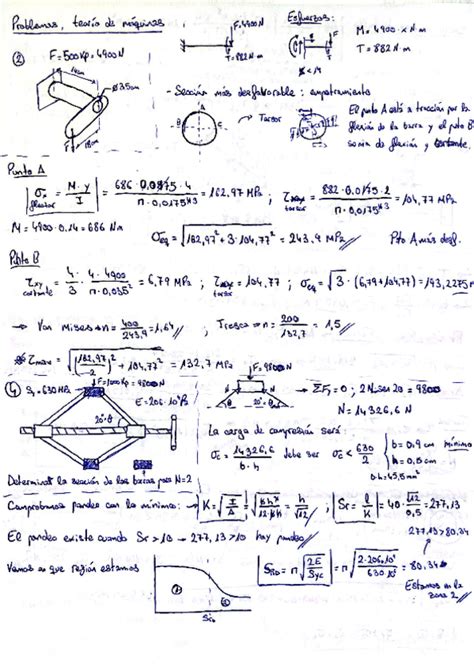 Problemas, teoría de máquinas
F=4900N
Esfuerzos:
M= 4900 · x N·m
T= 882N·m
T = 882 N·m
② F=500Kp=4900N
14cm
ø3.5cm
18cm
- Sección más desfavorable: empotramiento
A
B
Torsor
El punto A está a tracción por la
flexión de la barra y el punto B
sería de flexión y cortante.
Punto A
σx flexión = M·y / I = 686·0,0175·4 / π·0,0175^4 = 162,97 MPa ; τmax torsor = 882·0,0175·2 / π·0,0175^4 = 104,77 MPa
M = 4900·0.14 = 686 Nm
σeq = √162,97²+3·104,77² = 243,9 MPa
Pto A más desf.
Punto B
τxy cortante = 4/3 · 4·4900 / π·0,035² = 6,79 MPa ; τmax torsor = 104,77 ; σeq = √3 · (6,79+104,77) = 193,2275 M
→ Von Mises → n = 400/243.9 = 1,64 // Tresca → n = 200/132,7 = 1,5 //
τmax = √(162,97/2)² + 104,77² = 132,7 MPa
④ Sy=630MPa
F=1000Kp = 9800N
E=206·10⁹Pa
20°
F=9800N
N
N
20°
ΣFy=0 ; 2N sen 20 = 9800
N=14326,6 N
La carga de compresión será:
σc = 14326,6 / b·h debe ser σc < 630/2
b = 0,9 cm mínimo
h = 0,5cm
b·h=45,5mm²
Determinar la sección de las barras para N=2
Comprobamos pandeo con la mínima: → K = √I/A = √bh³/12·b·h = h/√12 ; Sr = l/K = 40·√12/0,5 = 277,13
277,13>80.34
El pandeo existe cuando Sr >10 → 277,13>10 hay pandeo //
Vemos en que región estamos
SrD = π√2E/Syc = π√2·206·10⁹/630·10⁶ = 80.34
Estamos en la
zona 2
①
②
SrD